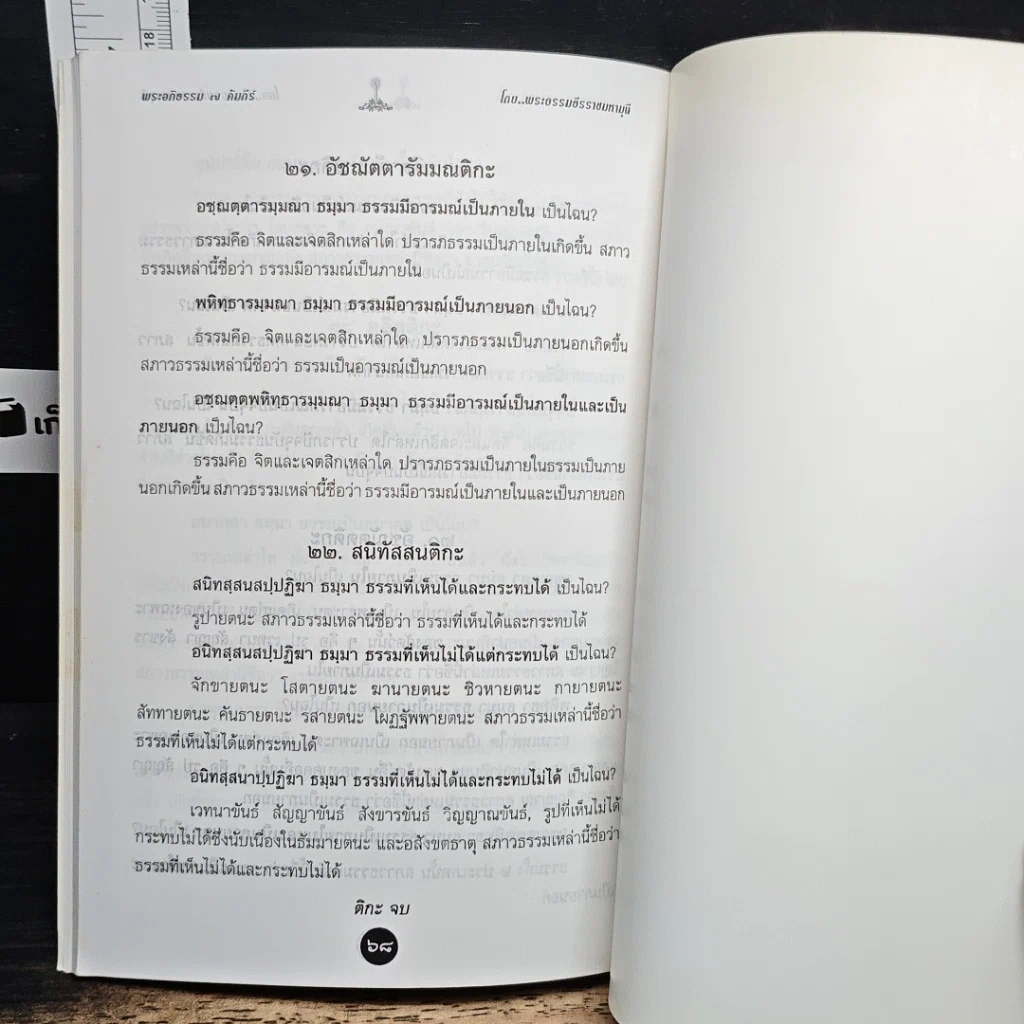 18
พระอภิธรรม ๗ คัมภีร์
โดย..พระธรรมธีรราชมหามุนี
๒๑. อัชฌัตตารัมมณติกะ
อชฺฌตฺตารมฺมณา ธมฺมา ธรรมมีอารมณ์เป็นภายใน เป็นไฉน?
ธรรมคือ จิตและเจตสิกเหล่าใด ปรารภธรรมเป็นภายในเกิดขึ้น สภาว
ธรรมเหล่านี้ชื่อว่า ธรรมมีอารมณ์เป็นภายใน
พหิทฺธารมฺมณา ธมฺมา ธรรมมีอารมณ์เป็นภายนอก เป็นไฉน?
ธรรมคือ จิตและเจตสิกเหล่าใด ปรารภธรรมเป็นภายนอกเกิดขึ้น
สภาวธรรมเหล่านี้ชื่อว่า ธรรมเป็นอารมณ์เป็นภายนอก
อชฺฌตฺตพหิทฺธารมฺมณา ธมฺมา ธรรมมีอารมณ์เป็นภายในและเป็น
ภายนอก เป็นไฉน?
ธรรมคือ จิตและเจตสิกเหล่าใด ปรารภธรรมเป็นภายในธรรมเป็นภาย
นอกเกิดขึ้น สภาวธรรมเหล่านี้ชื่อว่า ธรรมมีอารมณ์เป็นภายในและเป็นภายนอก
๒๒. สนิทัสสนติกะ
สนิทสฺสนสปฺปฏิฆา ธมฺมา ธรรมที่เห็นได้และกระทบได้ เป็นไฉน?
รูปายตนะ สภาวธรรมเหล่านี้ชื่อว่า ธรรมที่เห็นได้และกระทบได้
อนิทสฺสนสปฺปฏิฆา ธมฺมา ธรรมที่เห็นไม่ได้แต่กระทบได้ เป็นไฉน?
จักขายตนะ โสตายตนะ ฆานายตนะ ชิวหายตนะ กายายตนะ
สัททายตนะ คันธายตนะ รสายตนะ โผฏฐัพพายตนะ สภาวธรรมเหล่านี้ชื่อว่า
ธรรมที่เห็นไม่ได้แต่กระทบได้
อนิทสฺสนาปฺปฏิฆา ธมฺมา ธรรมที่เห็นไม่ได้และกระทบไม่ได้ เป็นไฉน?
เวทนาขันธ์ สัญญาขันธ์ สังขารขันธ์ วิญญาณขันธ์, รูปที่เห็นไม่ได้
กระทบไม่ได้ซึ่งนับเนื่องในธัมมายตนะ และอสังขตธาตุ สภาวธรรมเหล่านี้ชื่อว่า
ธรรมที่เห็นไม่ได้และกระทบไม่ได้
ติกะ จบ
๖๘